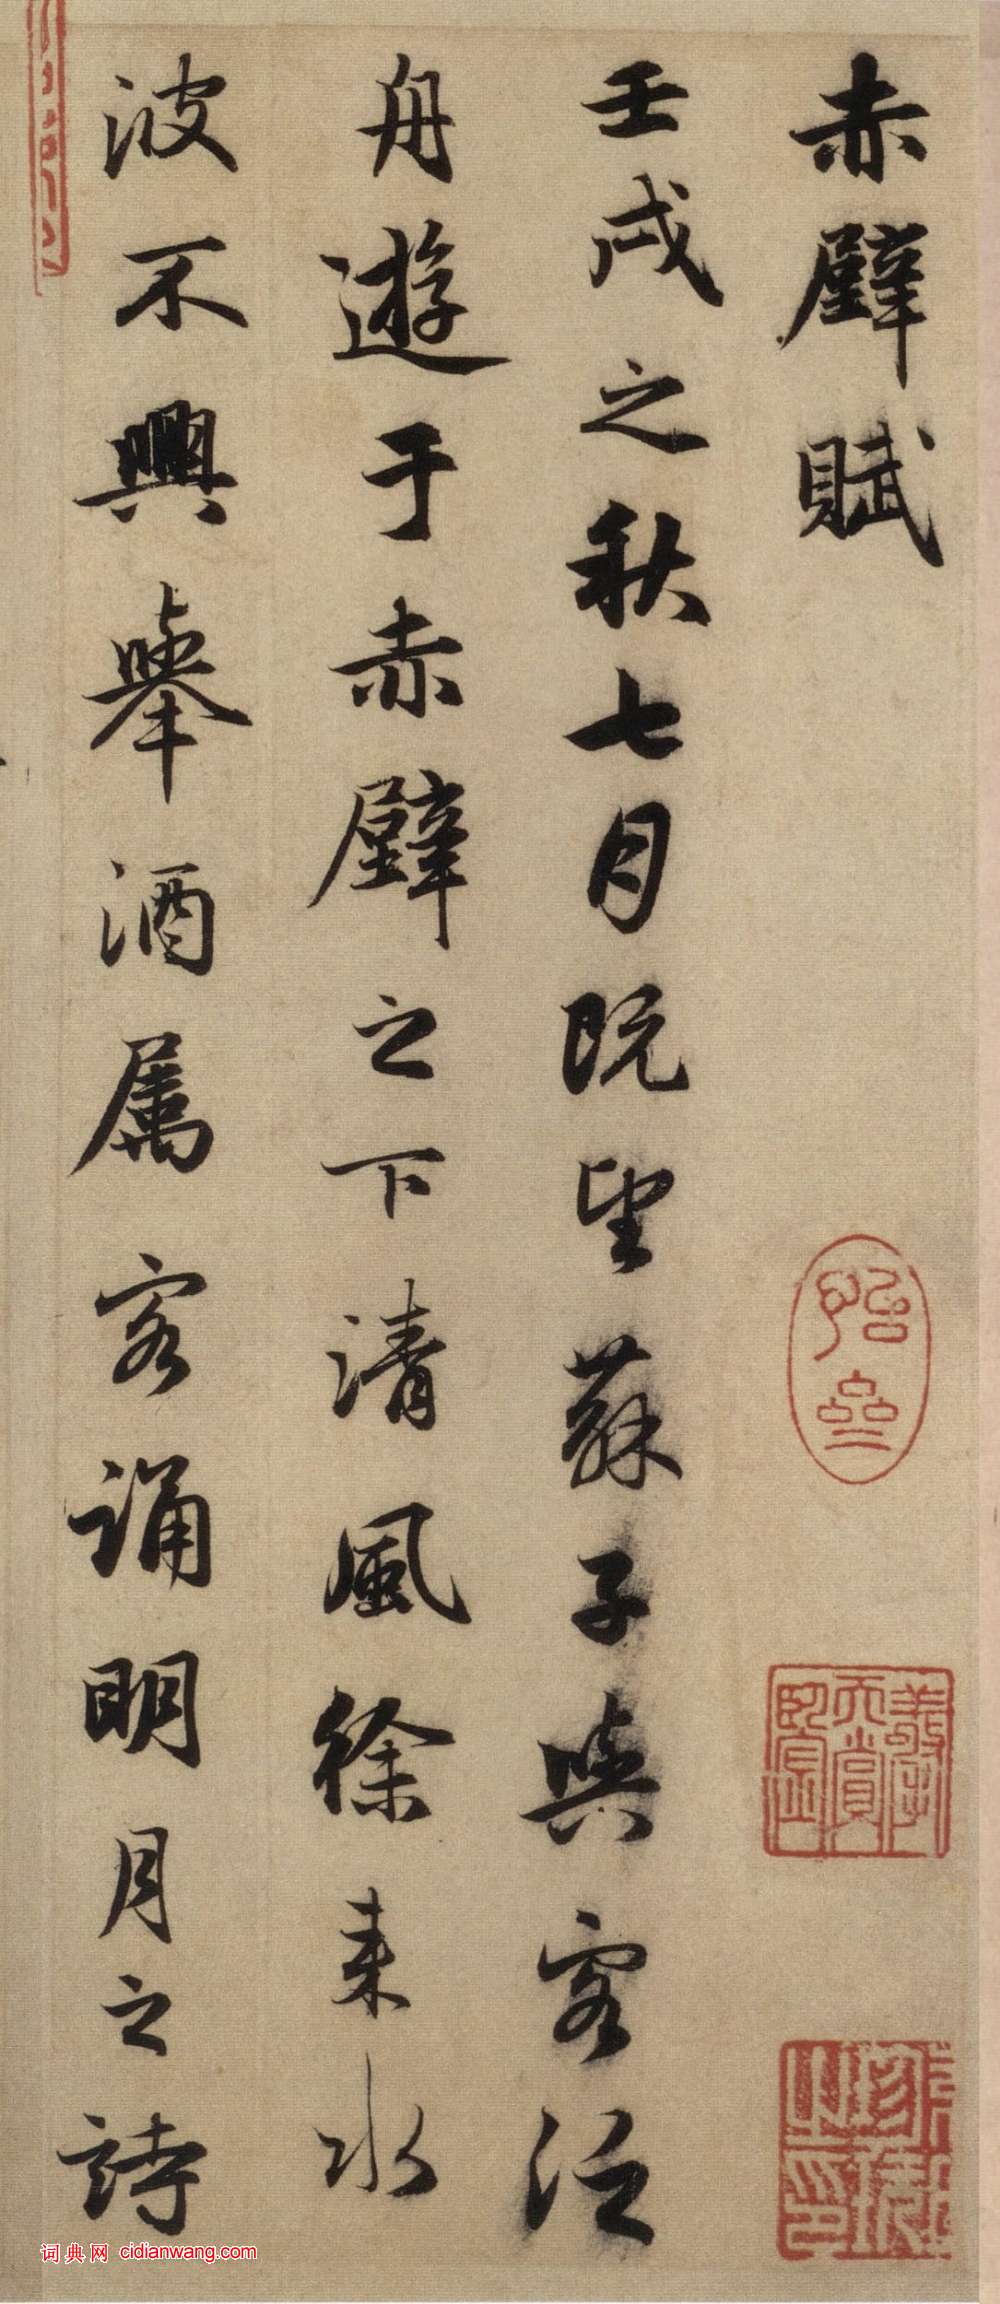 赤壁賦
壬戌之秋七月既望蘇子與客泛
舟遊于赤壁之下清風徐来水
波不興舉酒属客誦明月之詩
词典网 cidianwang.com